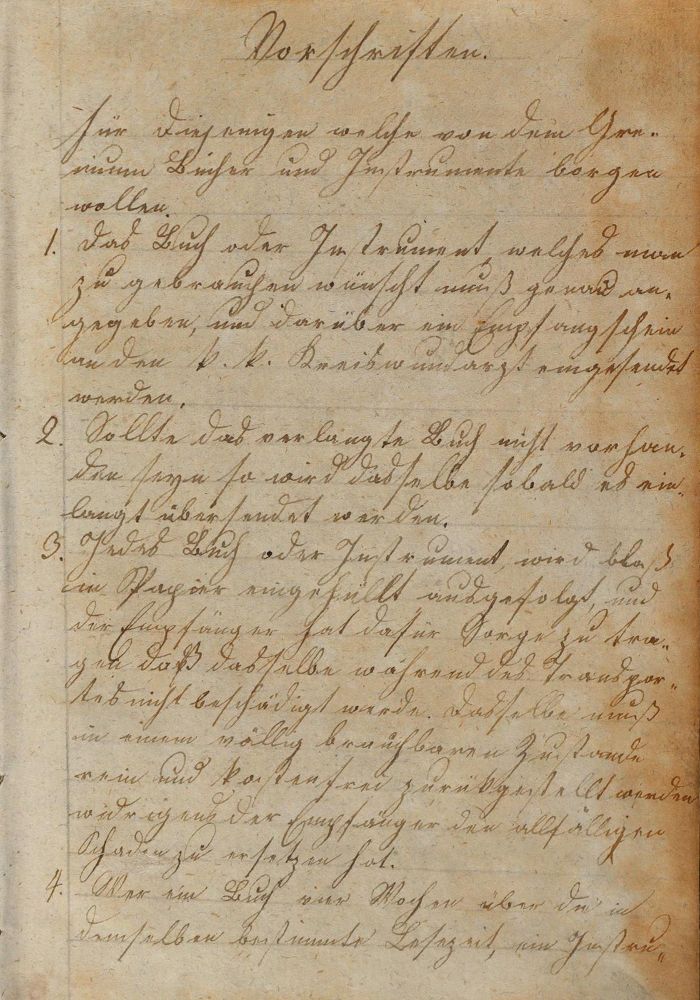 Vorschriften.
für diejenigen welche von dem Gre-
mium Bücher und Instrumente borgen
wollen.
1. Das Buch oder Instrument, welches man
zu gebrauchen wünscht muß genau an-
gegeben, und darüber ein Empfangschein
an den k. k. Kreiswundarzt eingesendet
werden.
2. Sollte das verlangte Buch nicht vorhan-
den seyn so wird dasselbe sobald es ein-
langt übersendet werden.
3. Jedes Buch oder Instrument wird bloß
in Papier eingehüllt ausgefolgt, und
der Empfänger hat dafür Sorge zu tra-
gen daß dasselbe während des Transpor-
tes nicht beschädigt werde. Dasselbe muß
in einem völlig brauchbaren Zustande
rein und kostenfrei zurükgestellt werden
widrigens der Empfänger den allfälligen
Schaden zu ersetzen hat.
4. Wer ein Buch vier Wochen über die in
demselben bestimmte Lesezeit, ein Instru-